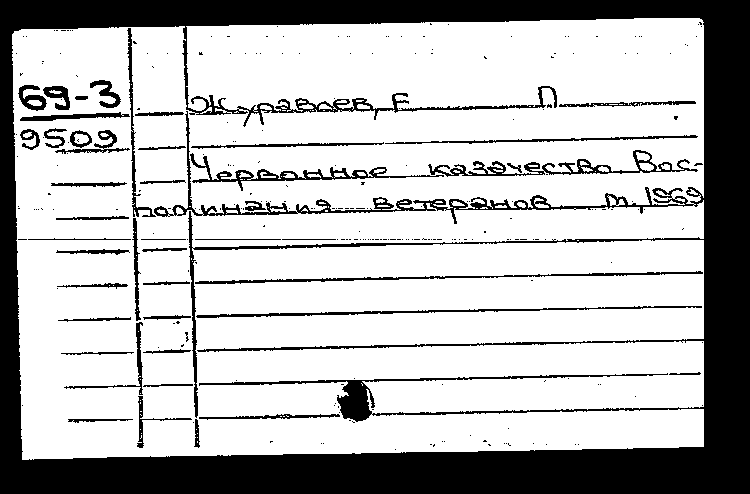 69-3
9509
Журавлев, Е П
Червонное казачество. Вос-
поминания ветеранов. м., 1969